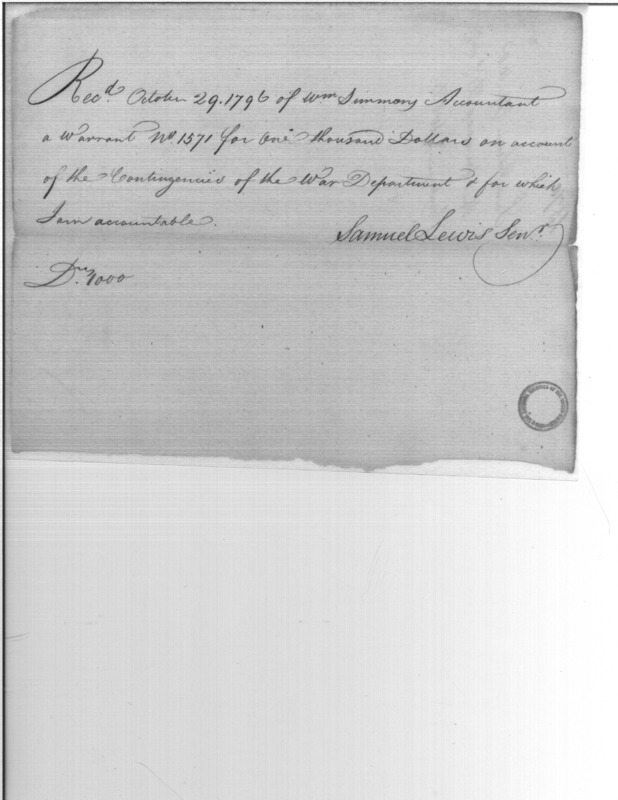 Rec.d October 29. 1796 of Wm Simmons Accountant
a Warrant No 1571 for One thousand Dollars on account
of the Contingencies of the War Department & for which
I am accountable.
Samuel Lewis Senr.
1000